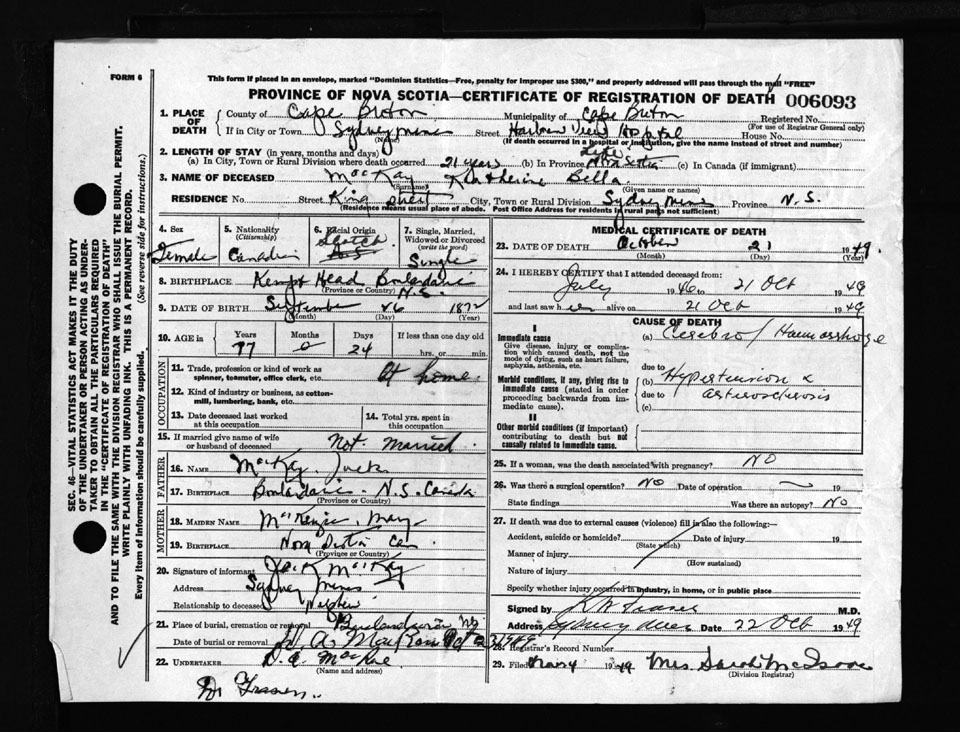 FORM 6
This form if placed in an envelope, marked "Dominion Statistics—Free, penalty for improper use $300," and properly addressed will pass through the mail "FREE"
PROVINCE OF NOVA SCOTIA—CERTIFICATE OF REGISTRATION OF DEATH 006093
SEC. 46—VITAL STATISTICS ACT MAKES IT THE DUTY
OF THE UNDERTAKER OR PERSON ACTING AS UNDER-
TAKER TO OBTAIN ALL THE PARTICULARS REQUIRED
IN THE "CERTIFICATE OF REGISTRATION OF DEATH"
AND TO FILE THE SAME WITH THE DIVISION REGISTRAR WHO SHALL ISSUE THE BURIAL PERMIT.
WRITE PLAINLY WITH UNFADING INK. THIS IS A PERMANENT RECORD.
Every item of information should be carefully supplied. (See reverse side for instructions.)
1. PLACE OF DEATH
County of Cape Breton Municipality of Cape Breton Registered No.
(For use of Registrar General only)
If in City or Town Sydney Mines Street Harbour View Hospital House No.
(Name) (If death occurred in a hospital or institution, give the name instead of street and number)
2. LENGTH OF STAY (in years, months and days)
(a) In City, Town or Rural Division where death occurred 21 years (b) In Province Life Nova Scotia (c) In Canada (if immigrant)
3. NAME OF DECEASED MacKay Katherine Bella
(Surname) (Given name or names)
RESIDENCE No. Street King Street City, Town or Rural Division Sydney Mines Province N.S.
(Residence means usual place of abode. Post Office Address for residents in rural parts not sufficient)
4. Sex Female
5. Nationality (Citizenship) Canadian
6. Racial Origin Scotch
7. Single, Married, Widowed or Divorced (write the word) Single
8. BIRTHPLACE Kempt Head Boulardarie N.S.
(Province or Country)
9. DATE OF BIRTH September 1872
(Month) (Day) (Year)
10. AGE in Years Months Days If less than one day old
77 0 24 hrs. or min.
OCCUPATION
11. Trade, profession or kind of work as spinner, teamster, office clerk, etc. At home
12. Kind of industry or business, as cotton-mill, lumbering, bank, etc.
13. Date deceased last worked at this occupation
14. Total yrs. spent in this occupation
15. If married give name of wife or husband of deceased Not Married
FATHER
16. NAME MacKay, Jack
17. BIRTHPLACE Boulardarie N.S. Canada
(Province or Country)
MOTHER
18. MAIDEN NAME MacKenzie, Mary
19. BIRTHPLACE Nova Scotia Can
(Province or Country)
20. Signature of informant Jack MacKay
Address Sydney Mines
Relationship to deceased Nephew
21. Place of burial, cremation or removal
Date of burial or removal Oct 23/1949
22. UNDERTAKER
(Name and address)
Dr Fraser
MEDICAL CERTIFICATE OF DEATH
23. DATE OF DEATH October 21 1949
(Month) (Day) (Year)
24. I HEREBY CERTIFY that I attended deceased from:
July 1946 to 21 Oct 1949
and last saw her alive on 21 Oct 1949
CAUSE OF DEATH
I
Immediate cause
Give disease, injury or complication which caused death, not the mode of dying, such as heart failure, asphyxia, asthenia, etc.
(a) Cerebral Haemorrhage
due to
Morbid conditions, if any, giving rise to immediate cause (stated in order proceeding backwards from immediate cause).
(b) Hypertension &
due to arteriosclerosis
(c)
II
Other morbid conditions (if important) contributing to death but not causally related to immediate cause.
25. If a woman, was the death associated with pregnancy? NO
26. Was there a surgical operation? NO Date of operation 19
State findings Was there an autopsy? NO
27. If death was due to external causes (violence) fill in also the following:—
Accident, suicide or homicide? Date of injury 19
(State which)
Manner of injury
(How sustained)
Nature of injury
Specify whether injury occurred in industry, in home, or in public place
Signed by Fraser M.D.
Address Sydney Mines Date 22 Oct 1949
28. Registrar's Record Number
29. Filed 1949 Mrs. Sarah McIsaac
(Division Registrar)